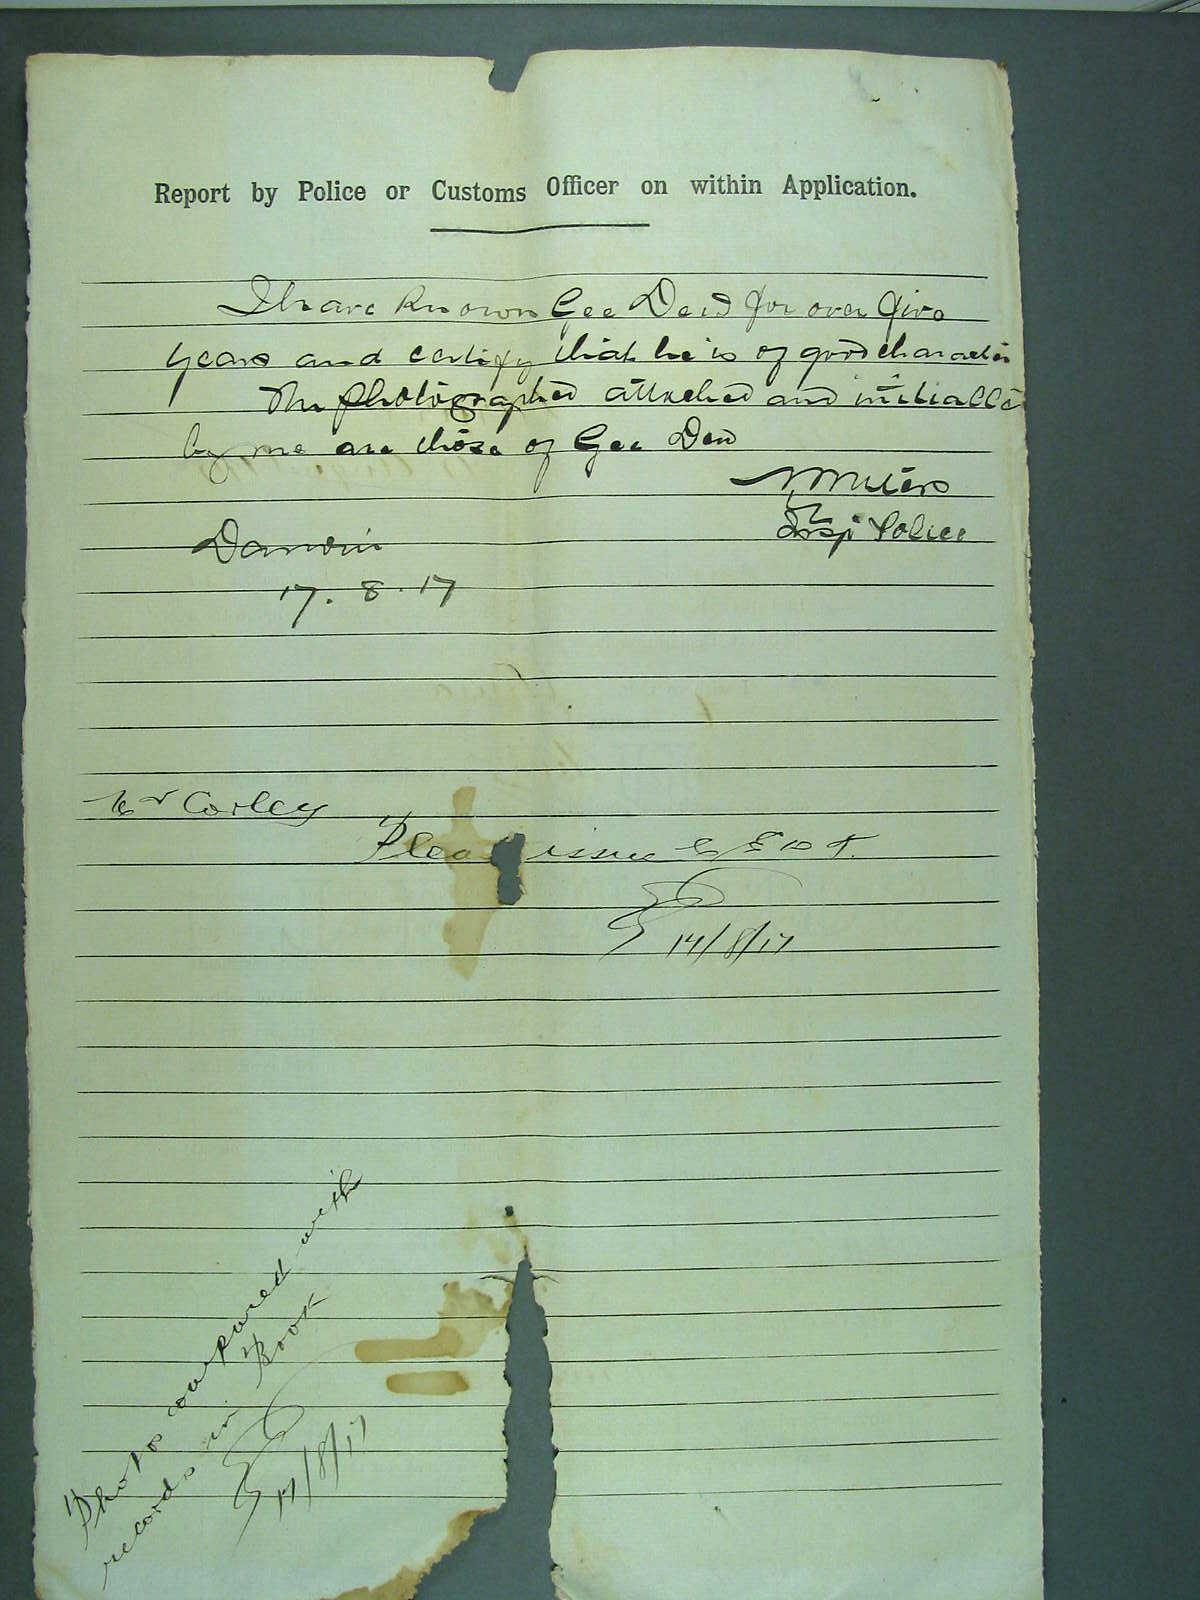 Report by Police or Customs Officer on within Application.
I have known Gee Dew for over five
years and certify that he is of good character
The photographed attached and initialled
by me are those of Gee Dew
N Waters
Insp Police
Darwin
17.8.17
Mr Corley
Please issue C E D T.
17/8/17
Photos compared with
records in Book
17/8/17